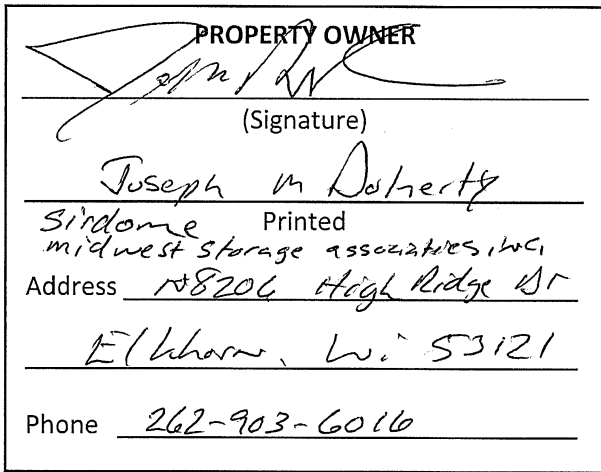 PROPERTY OWNER
(Signature)
Joseph M Doherty
Printed
Sirdome
midwest storage associates, inc,
Address N8206 High Ridge Dr
Elkhorn, Wi 53121
Phone 262-903-6016